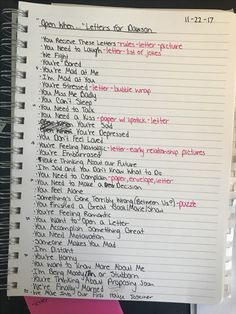 11-22-17
"Open When..." Letters for Dawson
· You Recieve These Letters -rules-letter-picture
· You Need to Laugh -letter-list of jokes
· We Fight
· You're Bored
· You're Mad at Me
· I'm Mad at You
· You're Stressed -letter-bubble wrap
· You Miss Me Badly
· You Can't Sleep
· You Need to Talk
· You Need a Kiss -paper w/ lipstick -letter
You're Sad
You're Depressed
· You Don't Feel Loved
· You're Feeling Nostalgic -letter-early relationship pictures
· You're Embarrassed
· You're Thinking About Our Future
· I'm Sad and You Don't Know What to Do
· You Need to Complain -paper, envelope, letter
· You Need to Make a Decision
· You Feel Alone
· Something's Gone Terribly Wrong (Between Us?)
· You Finished a Great Book/Movie/Show -puzzle
· You're Feeling Romantic
· You Want to Open a Letter
· You Accomplish Something Great
· You Need Motivation
· Someone Makes You Mad
· I'm Distant
· You're Horny
· You Want to Know More About Me
· I'm Being Moody or Stubborn
· You're Thinking About Proposing Soon
· We're Finally Married
· We Move Into Our First House Together